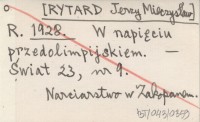 [RYTARD Jerzy Mieczysław]
R. 1928. W napięciu
przedolimpijskiem. —
Świat 23, nr 9.
Narciarstwo w Zakopanem.